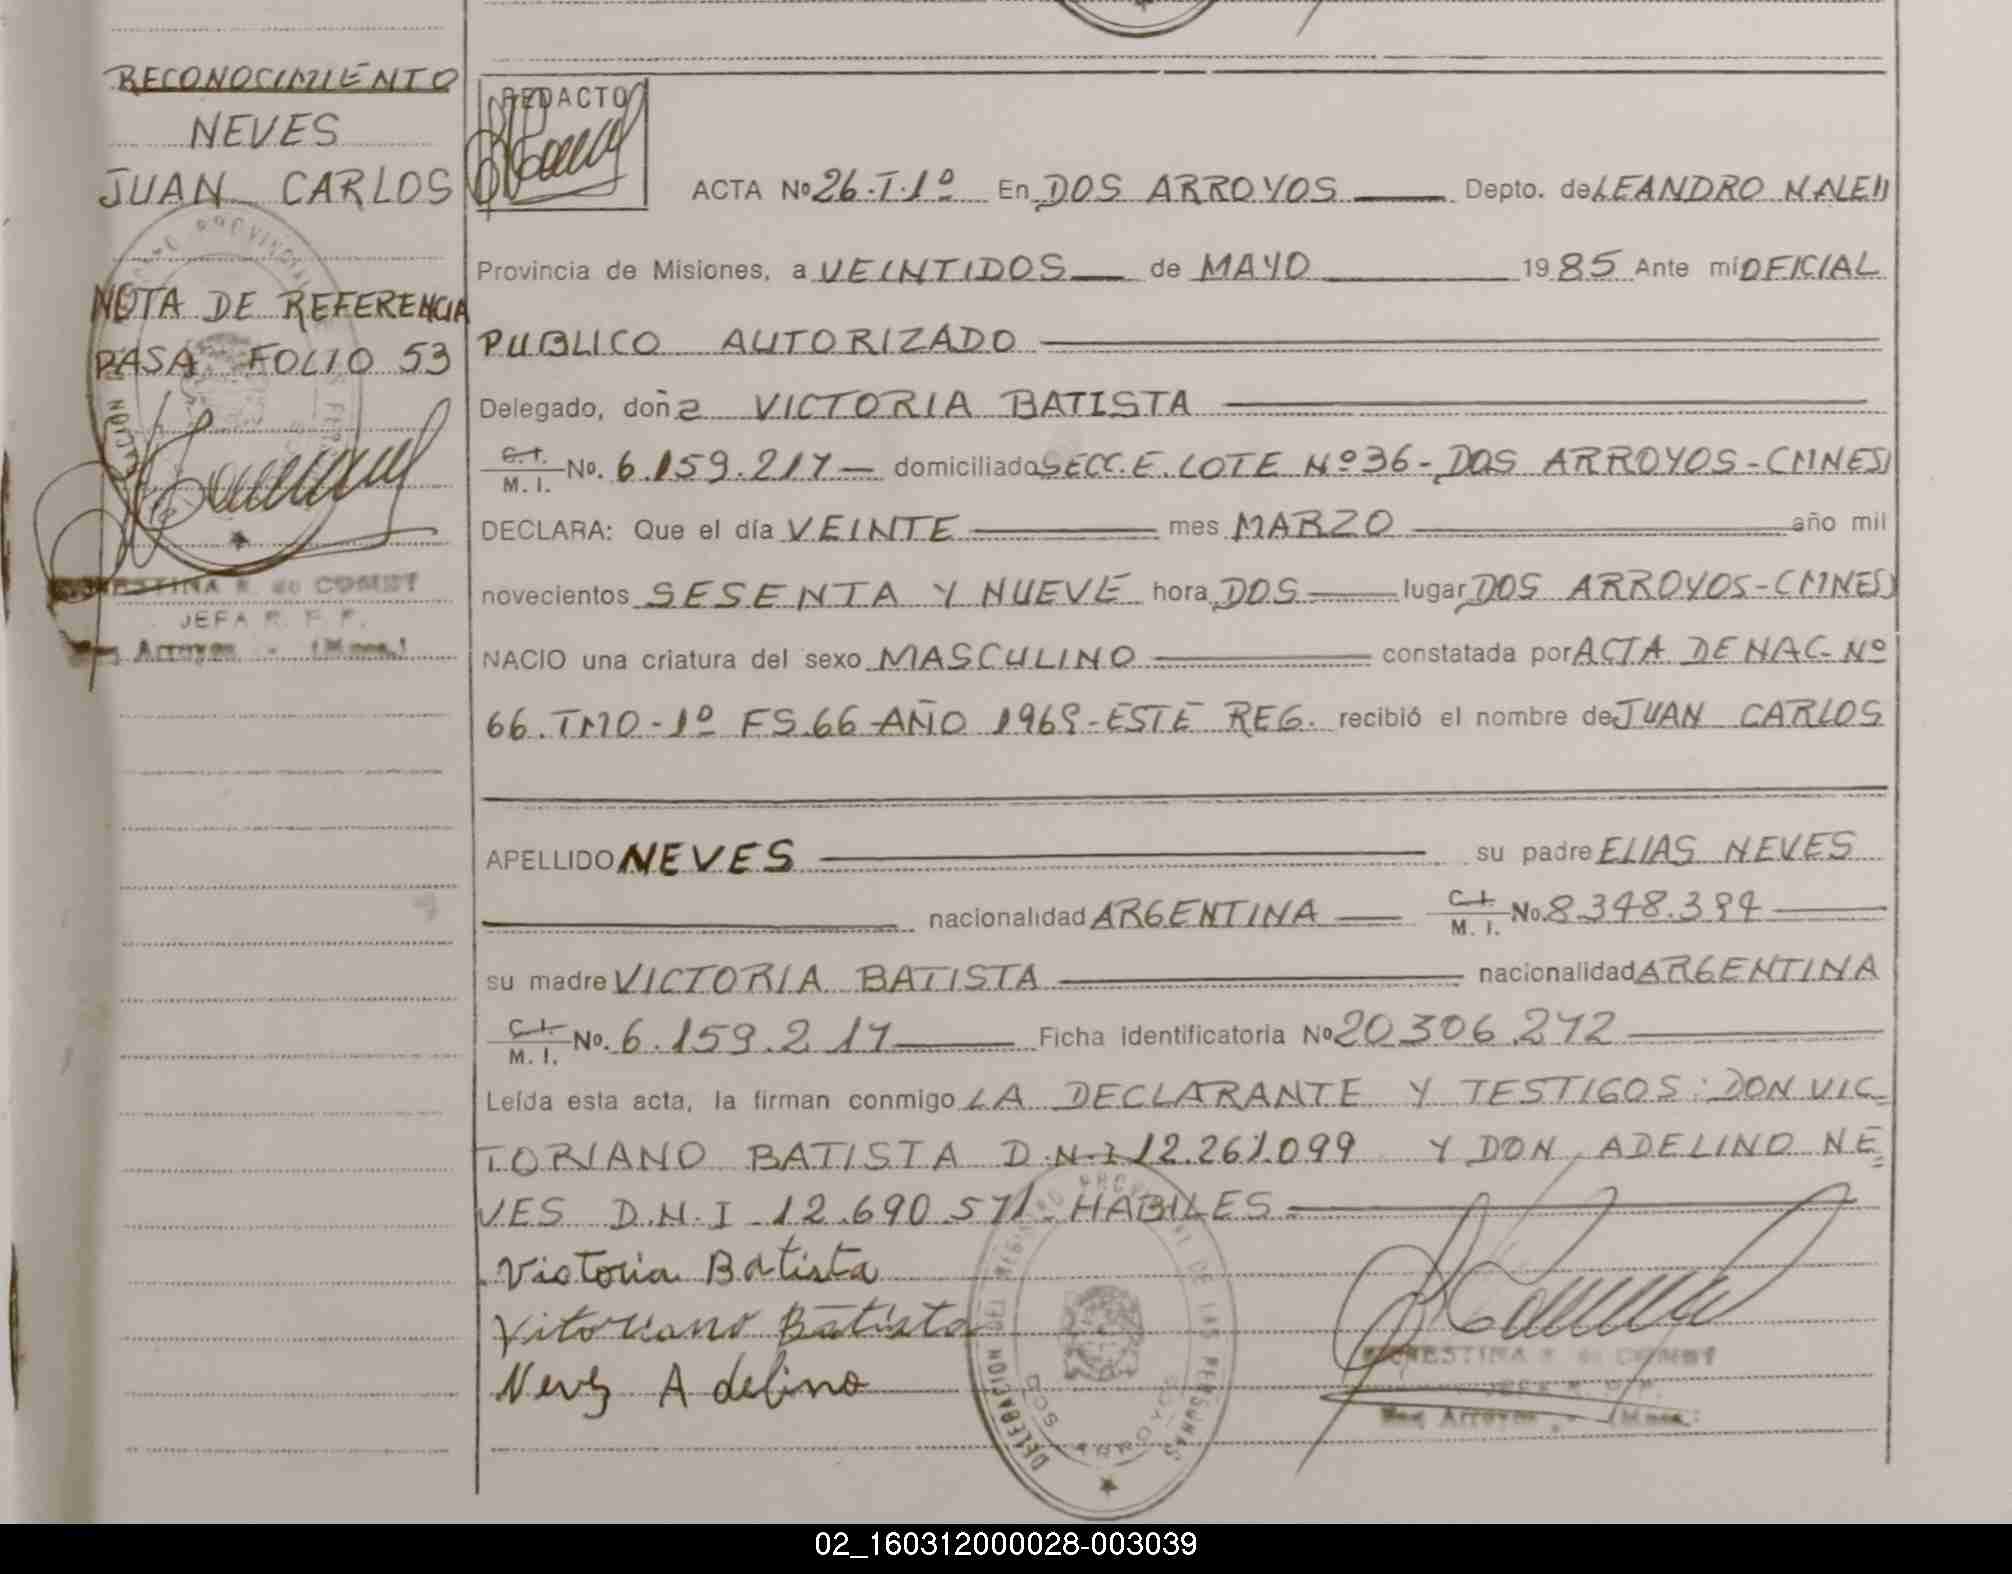 RECONOCIMIENTO
NEVES
JUAN CARLOS
NOTA DE REFERENCIA
PASA FOLIO 53
JEFA R. P. P.
Dos Arroyos - (Mnes.)
REDACTO
ACTA Nº 26.T.1º En DOS ARROYOS Depto. de LEANDRO N ALEM
Provincia de Misiones, a VEINTIDOS de MAYO 1985 Ante mí OFICIAL
PUBLICO AUTORIZADO
Delegado, doña VICTORIA BATISTA
C.I. M. I. No. 6.159.217 domiciliado SECC. E. LOTE Nº 36 - DOS ARROYOS - (MNES)
DECLARA: Que el día VEINTE mes MARZO año mil
novecientos SESENTA Y NUEVE hora DOS lugar DOS ARROYOS - (MNES)
NACIO una criatura del sexo MASCULINO constatada por ACTA DE NAC. Nº
66. TMO - 1º FS. 66 AÑO 1969 - ESTE REG. recibió el nombre de JUAN CARLOS
APELLIDO NEVES su padre ELIAS NEVES
nacionalidad ARGENTINA C.I. M. I. No. 8.348.394
su madre VICTORIA BATISTA nacionalidad ARGENTINA
C.I. M. I. No. 6.159.217 Ficha identificatoria Nº 20.306.272
Leída esta acta, la firman conmigo LA DECLARANTE Y TESTIGOS: DON VIC=
TORIANO BATISTA D.N.I 12.261.099 Y DON ADELINO NE=
VES D.N.I - 12.690.571. HABILES
Victoria Batista
Vitoriano Batista
Neves Adelino
DELEGACION DEL REGISTRO PROVINCIAL DE LAS PERSONAS
DOS ARROYOS
Dos Arroyos - (Mnes.)
02_160312000028-003039